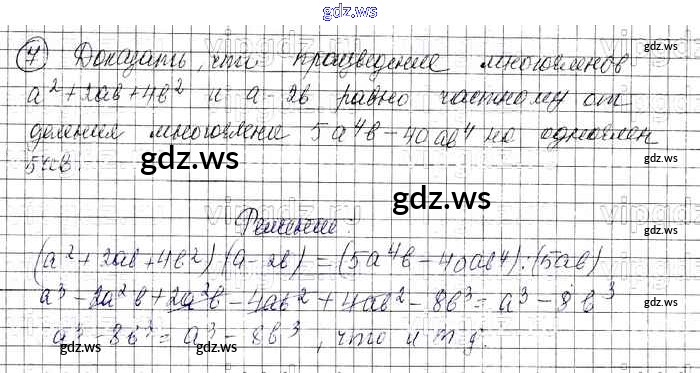 gdz.ws
④ Доказать, что произведение многочленов
a² + 2ab + 4b² и a - 2b равно частному от
деления многочлена 5a⁴b - 40ab⁴ на одночлен
5ab.
gdz.ws
gdz.ws
Решение:
(a² + 2ab + 4b²)(a - 2b) = (5a⁴b - 40ab⁴) : (5ab)
a³ - 2a²b + 2a²b - 4ab² + 4ab² - 8b³ = a³ - 8b³
a³ - 8b³ = a³ - 8b³, что и т д.
gdz.ws
gdz.ws
gdz.ws
gdz.ws
gdz.ws